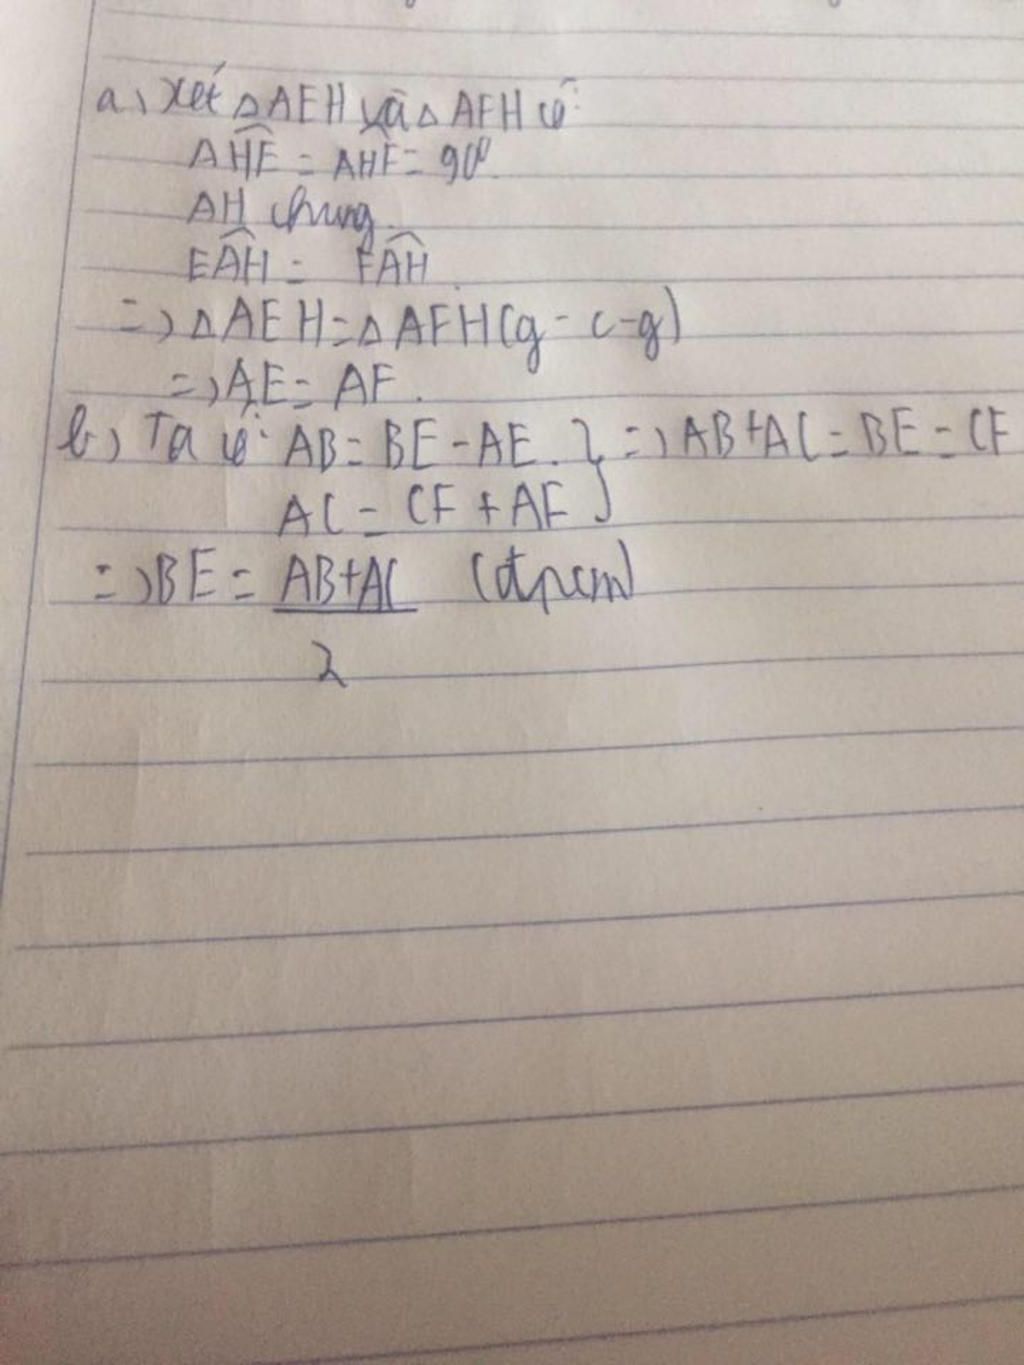 a, Xét △AEH và △AFH có:
AĤE = AĤF = 90°.
AH chung.
EÂH = FÂH.
=> △AEH = △AFH (g-c-g)
=> AE = AF.
b) Ta có: AB = BE - AE. } => AB+AC = BE = CF
AC = CF + AF }
=> BE = AB+AC (đpcm)
2